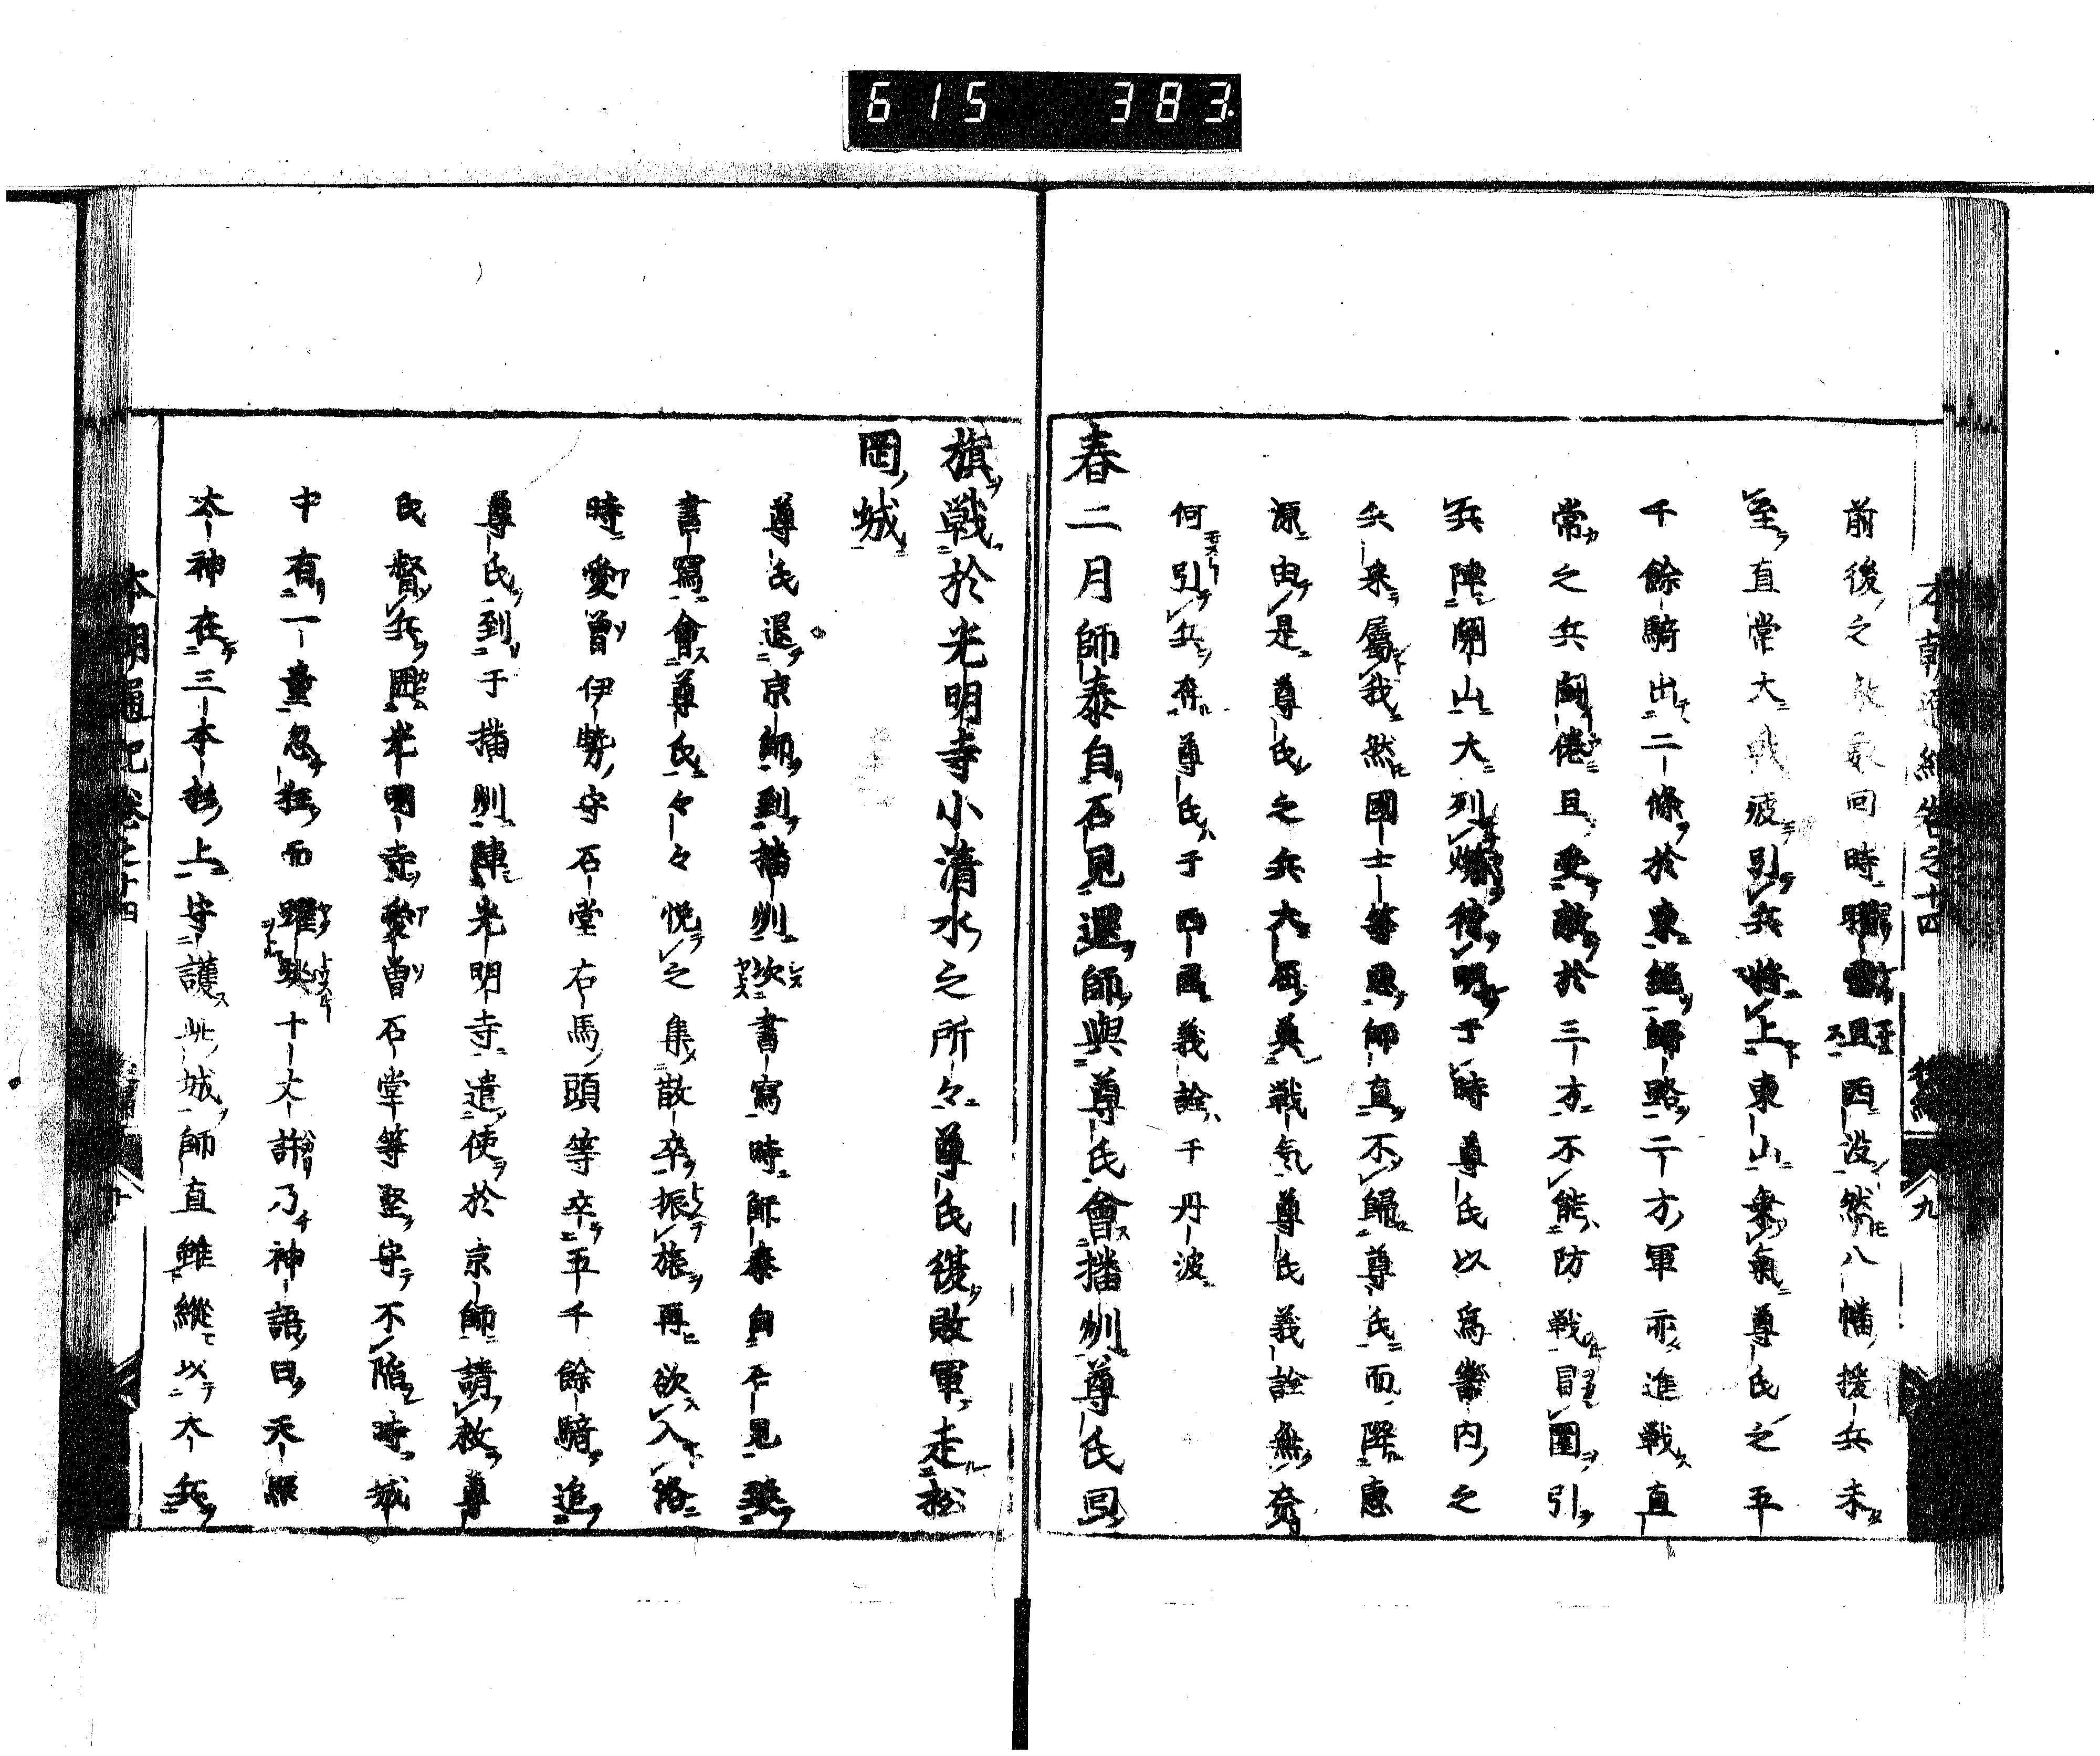 615 383
前後之敵数回時 且西没然八幡援兵未
至直常大戦疲引兵将上東山乗氣尊氏之五
千餘騎出二條於東絶歸路二方軍亦進戦直
常之兵闘倦且受敵於三方不能防戦冒圍引
兵陣關山大列燎待明于時尊氏以為畿内之
兵来属我然國士等思師直不歸尊氏而降惠
源由是尊氏之兵大 戦気尊氏義詮無
何引兵奔尊氏于西國義詮于丹波
春二月師泰自石見還師與尊氏會播州尊氏回
旗戦於光明寺小清水之所々尊氏従敗軍走松
岡城
尊氏退京師到播州次書寫時師泰自石見
書寫會尊氏々々悦之集散卒振旅再欲入洛
時愛曽伊勢守石堂右馬頭等卒五千餘騎追
尊氏到于播州陣光明寺遣使於京師請救尊
氏督兵圍光明寺愛曽石堂等堅守不陥時城
中有一童忽狂而躍 十丈許乃神語曰天照
太神在三本杉上守護此城師直雖縦以大兵
本朝通紀巻之十四 後編 九
本朝通紀巻之十四